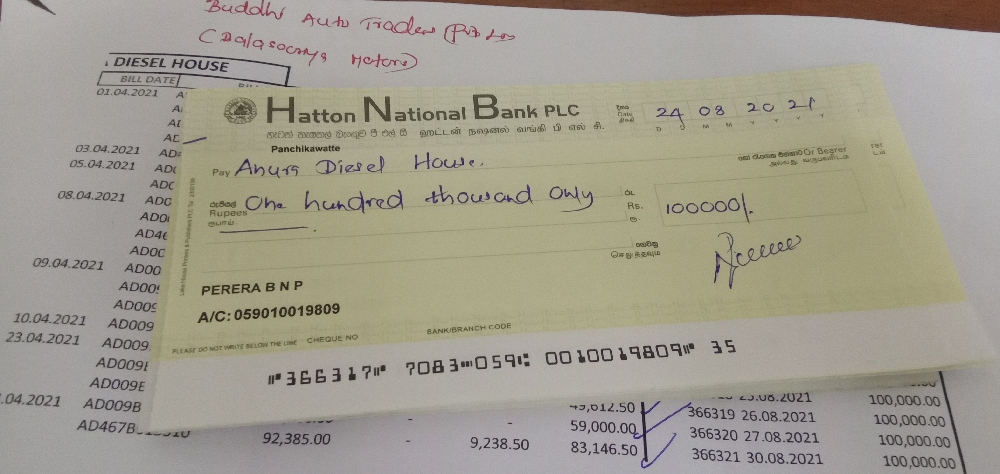 Buddhi Auto Traders (Pvt) Ltd
Motors)
DIESEL HOUSE
BILL DATE
01.04.2021
03.04.2021
05.04.2021
08.04.2021
AD46
AD0C
09.04.2021 AD00
AD009
10.04.2021 AD009
23.04.2021 AD009
AD009B
.04.2021 AD009B
Hatton National Bank PLC
හැටන් නැෂනල් බැංකුව පී එල් සී ஹட்டன் நஷனல் வங்கி பி எல் சி.
Date 24 08 2021
D D M M Y Y Y Y
Panchikawatte
Pay Anura Diesel House.
Or Bearer
රුපියල් Rupees ரூபாய் One hundred thousand only
රු. Rs. ரூ. 100000/-
PERERA B N P
A/C: 059010019809
PLEASE DO NOT WRITE BELOW THE LINE CHEQUE NO BANK/BRANCH CODE
⑈366317⑈ 7083⑉059⑆ 0010019809⑈ 35
49,612.50 25.08.2021 100,000.00
- - 59,000.00 366319 26.08.2021 100,000.00
92,385.00 - 9,238.50 83,146.50 366320 27.08.2021 100,000.00
366321 30.08.2021 100,000.00